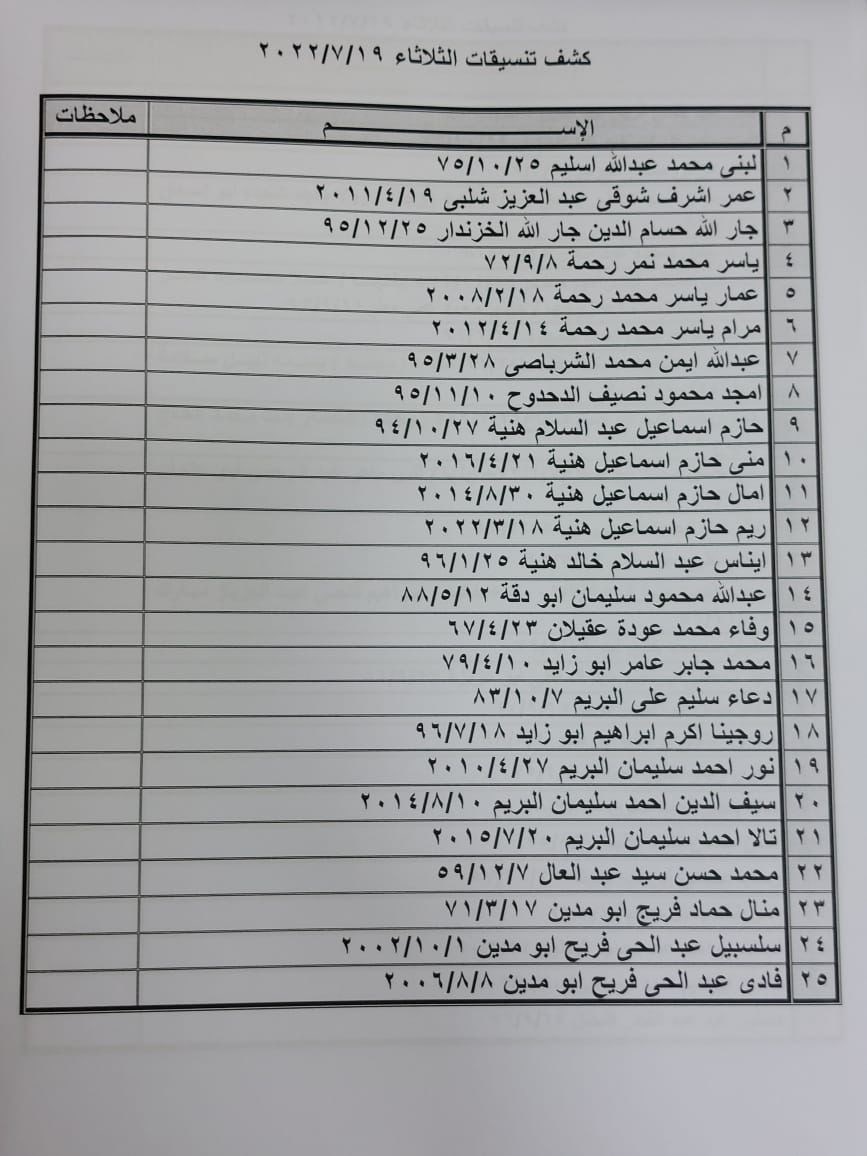 كشف تنسيقات الثلاثاء ٢٠٢٢/٧/١٩
م الإســـــــــم ملاحظات
١ لبنى محمد عبدالله اسليم ٧٥/١٠/٢٥
٢ عمر اشرف شوقى عبد العزيز شلبى ٢٠١١/٤/١٩
٣ جار الله حسام الدين جار الله الخزندار ٩٥/١٢/٢٥
٤ ياسر محمد نمر رحمة ٧٢/٩/٨
٥ عمار ياسر محمد رحمة ٢٠٠٨/٢/١٨
٦ مرام ياسر محمد رحمة ٢٠١٢/٤/١٤
٧ عبدالله ايمن محمد الشرباصى ٩٥/٣/٢٨
٨ امجد محمود نصيف الدحدوح ٩٥/١١/١٠
٩ حازم اسماعيل عبد السلام هنية ٩٤/١٠/٢٧
١٠ منى حازم اسماعيل هنية ٢٠١٦/٤/٢١
١١ امال حازم اسماعيل هنية ٢٠١٤/٨/٣٠
١٢ ريم حازم اسماعيل هنية ٢٠٢٢/٣/١٨
١٣ ايناس عبد السلام خالد هنية ٩٦/١/٢٥
١٤ عبدالله محمود سليمان ابو دقة ٨٨/٥/١٢
١٥ وفاء محمد عودة عقيلان ٦٧/٤/٢٣
١٦ محمد جابر عامر ابو زايد ٧٩/٤/١٠
١٧ دعاء سليم على البريم ٨٣/١٠/٧
١٨ روجينا اكرم ابراهيم ابو زايد ٩٦/٧/١٨
١٩ نور احمد سليمان البريم ٢٠١٠/٤/٢٧
٢٠ سيف الدين احمد سليمان البريم ٢٠١٤/٨/١٠
٢١ تالا احمد سليمان البريم ٢٠١٥/٧/٢٠
٢٢ محمد حسن سيد عبد العال ٥٩/١٢/٧
٢٣ منال حماد فريج ابو مدين ٧١/٣/١٧
٢٤ سلسبيل عبد الحى فريح ابو مدين ٢٠٠٢/١٠/١
٢٥ فادى عبد الحى فريح ابو مدين ٢٠٠٦/٨/٨